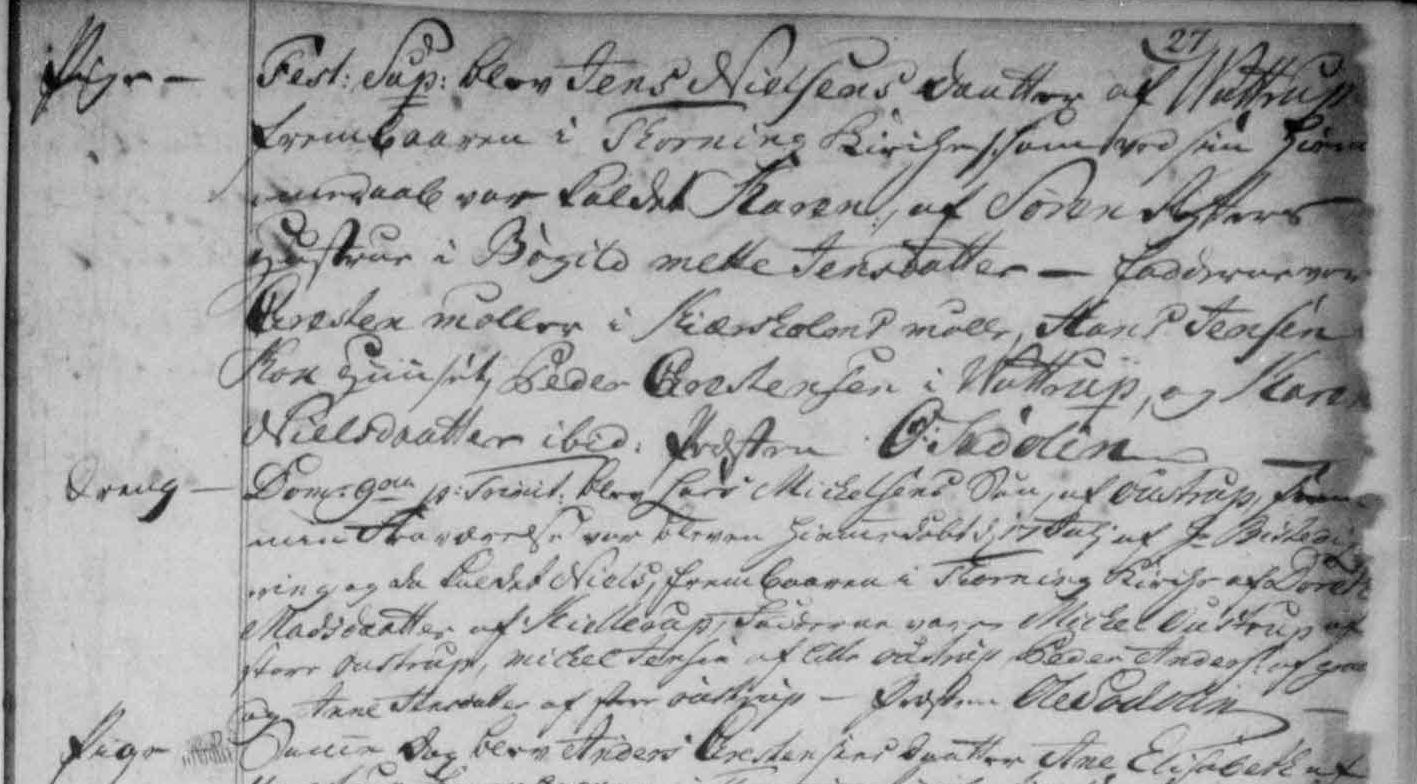 27
Pige — Fest: Sup: blev Jens Nielsens Daatter af Wattrup
frembaaren i Torning Kirche, som ved sin Hiem
medaab var kaldet Karen, af Sören
Hustrue i Bögild mette Jensdatter — Fadderne var
Christen möller i Kiærsholms mölle, Hans Jensen
Peder Christensen i Wattrup, og Karen
Nielsdaatter ibid: Præsten O: Sadolin
Dreng — Dom: 9na p: Trinit: blev Lars Michelsens Sön, af oustrup,
var bleven Hiemmedöbt d 17 Julj af
og da kaldet Niels, frembaaren i Torning Kirche af Dorth
Madsdaatter af Fadderne vare Michel Oustrup af
store oustrup, michel Jensen af lille oustrup, Peder Anders: af
og Anne af store oustrup — Præsten Ole Sadolin
Pige Samme Dag blev Anders Christensens Daatter Ane Elisabeth